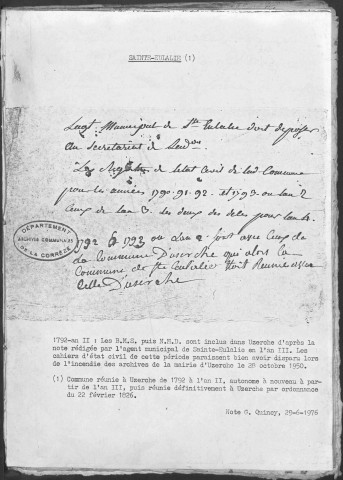 SAINTE-EULALIE (1)
Lagt. Municipal de Ste Eulalie doit deposer
au Secretariat de
Les Registres de letat Civil de lad Commune
pour les années 1790-91-92- et 1793 ou lan 2
Ceux de lan 3. les doubles des
DEPARTEMENT
ARCHIVES COMMUNALES
DE LA CORREZE
1792 & 1793 ou lan 2 sont avec Ceux de
la Commune Duserche qui alors la
Commune de Ste Eulalie étoit Reunie a
Celle Duserche
1792-an II : Les B.M.S, puis N.M.D. sont inclus dans Uzerche d'après la
note rédigée par l'agent municipal de Sainte-Eulalie en l'an III. Les
cahiers d'état civil de cette période paraissent bien avoir disparu lors
de l'incendie des archives de la mairie d'Uzerche le 28 octobre 1950.
(1) Commune réunie à Uzerche de 1792 à l'an II, autonome à nouveau à par-
tir de l'an III, puis réunie définitivement à Uzerche par ordonnance
du 22 février 1826.
Note G. Quincy, 29-6-1976